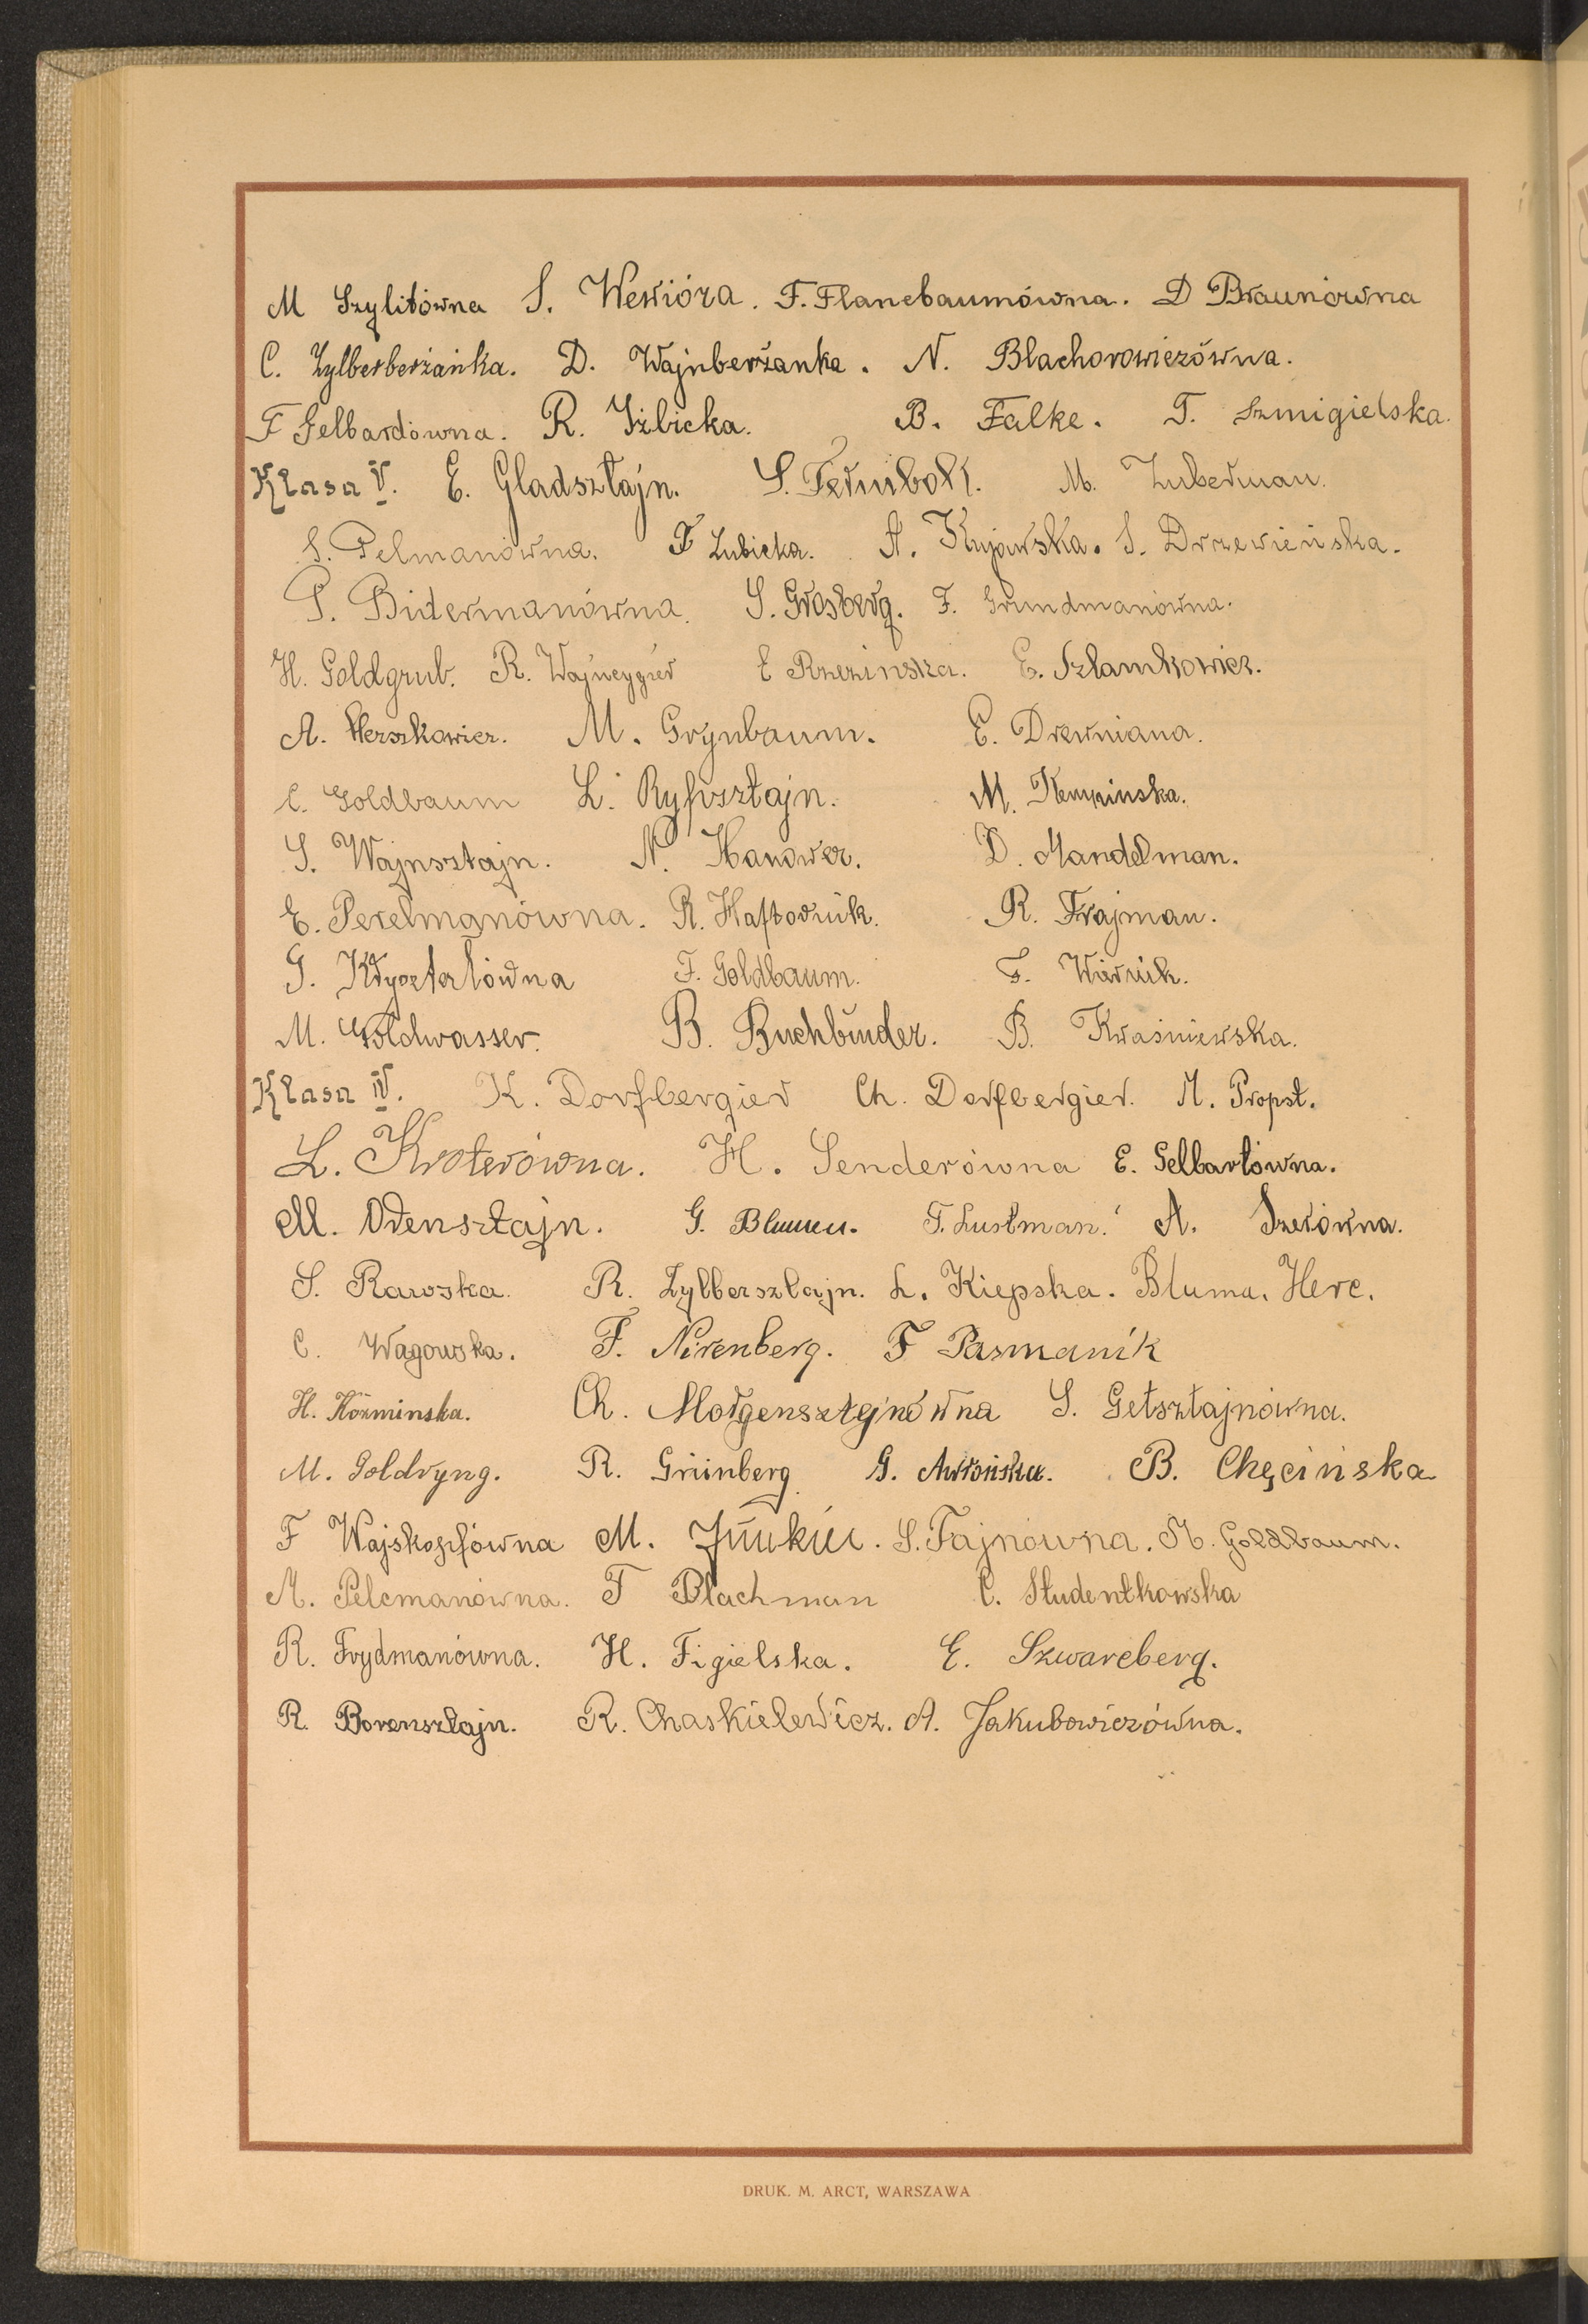 M Szylitówna S. Wewióra. F. Flancbaumówna. D Braunówna
C. Zylberberżanka. D. Wajnberżanka. N. Blachorowiczówna.
F Gelbardówna. R. Iżbicka. B. Falke. T. Szmigielska.
Klasa V. E. Gladsztajn. S. Fernibok. M. Zuberman.
S. Pelmanówna. F Lubicka. A. Kujawska. S. Drzewieńska.
P. Bidermanówna. S. Grosberg. F. Grundmanówna.
H. Goldgrub. R. E Rzezinska. E. Szlamkowicz.
A. Herszkowicz. M. Grynbaum. E. Drewniana.
C. Goldbaum L. M. Kempinska.
S. Wajnsztajn. N. Hanower. D. Mandelman.
E. Perelmanówna. R. Haftornik. R. Frajman.
G. Kryształówna F. Goldbaum. F. Wiernik.
M. Goldwasser. B. Buchbinder. B. Kwaśniewska.
Klasa IV. K. Dorfbergier Ch. Dorfbergier. M. Propst.
L. Kroterówna. H. Senderówna E. Gelbartówna.
M. Orensztajn. G. Blumen. T. Lustman. A. Szerówna.
S. Rawska. R. Zylbersztajn. L. Kiepska. Bluma. Herc.
C. Wagowska. F. Nirenberg. F Pasmanik
H. Koźminska. Ch. Morgensztejnówna S. Getsztajnówna.
M. Goldryng. R. Grünberg G. B. Chęcińska
F Wajskopfówna M. S. Fajnówna. M. Goldbaum.
M. Pelcmanówna. F Blachman C. Studentkowska
R. Frydmanówna. H. Figielska. E. Szwarcberg.
R. Borensztajn. R. Chaskielewicz. A. Jakubowiczówna.
DRUK. M. ARCT, WARSZAWA